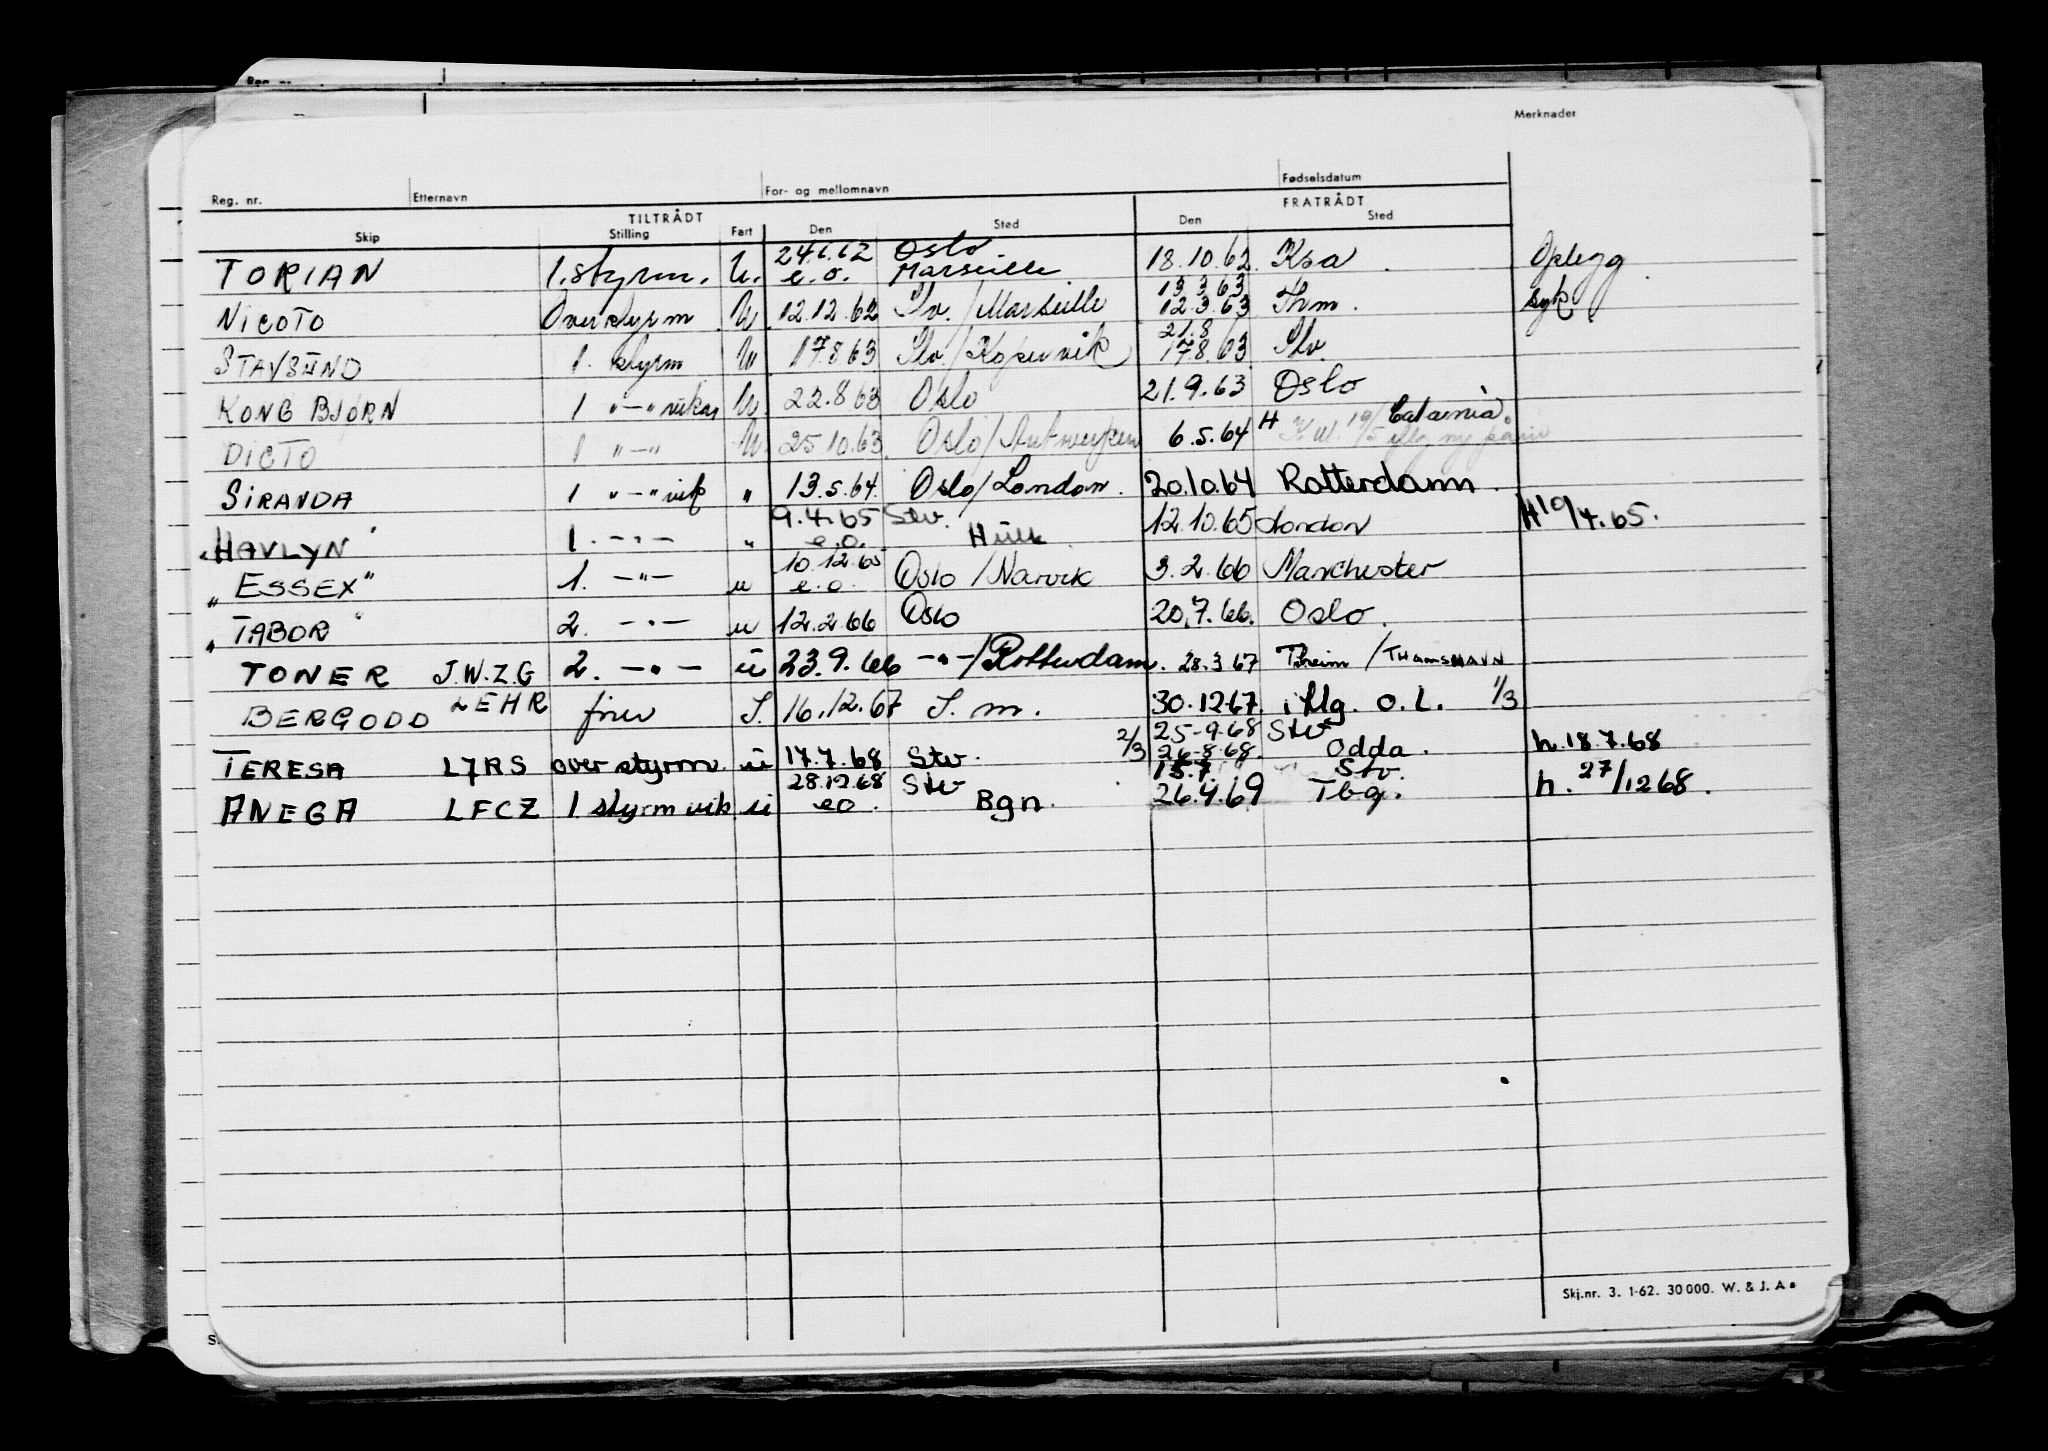 Reg. nr.
Merknader
Reg. nr. Etternavn For- og mellomnavn Fødselsdatum
TILTRÅDT FRATRÅDT
Skip Stilling Fart Den Sted Den Sted
24.1.62 Oslo
TORIAN 1. styrm. U. e.o. Marseille 18.10.62 Ksa. Oplegg
13.3.63
NICOTO Overstyrm U. 12.12.62 Slv. / Marseille 12.3.63 Thm. syk
21.8
STAVSUND 1. styrm U 17.8.63 Slv. / Kopervik 17.8.63 Slv.
KONG BJØRN 1 "-" vikar U. 22.8.63 Oslo 21.9.63 Oslo
DICTO 1 "-" U. 25.10.63. Oslo / Antwerpen 6.5.64 H
SIRANDA 1 "-" vik " 13.5.64. Oslo / London. 20.10.64 Rotterdam.
9.4.65 Stv.
"HAVLYN" 1. -"- " e.o. Hull 12.10.65 London H 10/4.65.
10.12.65
"ESSEX" 1. -"- u e.o. Oslo / Narvik 3.2.66 Manchester
"TABOR" 2. -"- u 12.2.66 Oslo 20.7.66. Oslo.
TONER J.W.Z.G 2. -"- u 23.9.66 -"- / Rotterdam. 28.3.67 Trheim / THAMSHAVN
BERGODD LEHR S. 16.12.67 S. m. 30.12.67. i flg. o.l. 1/3
25-9.68 Stv
TERESA LJRS overstyrm. u 17.7.68 Stv. 2/3 26-8.68. Odda. h. 18.7.68
28.12.68 Stv 15.7. Stv.
ANEGA LFCZ 1. styrm vik u eo. Bgn. 26.4.69 Tbg. h. 27/12 68.
Skj.nr. 3. 1-62. 30 000. W. & J. A s